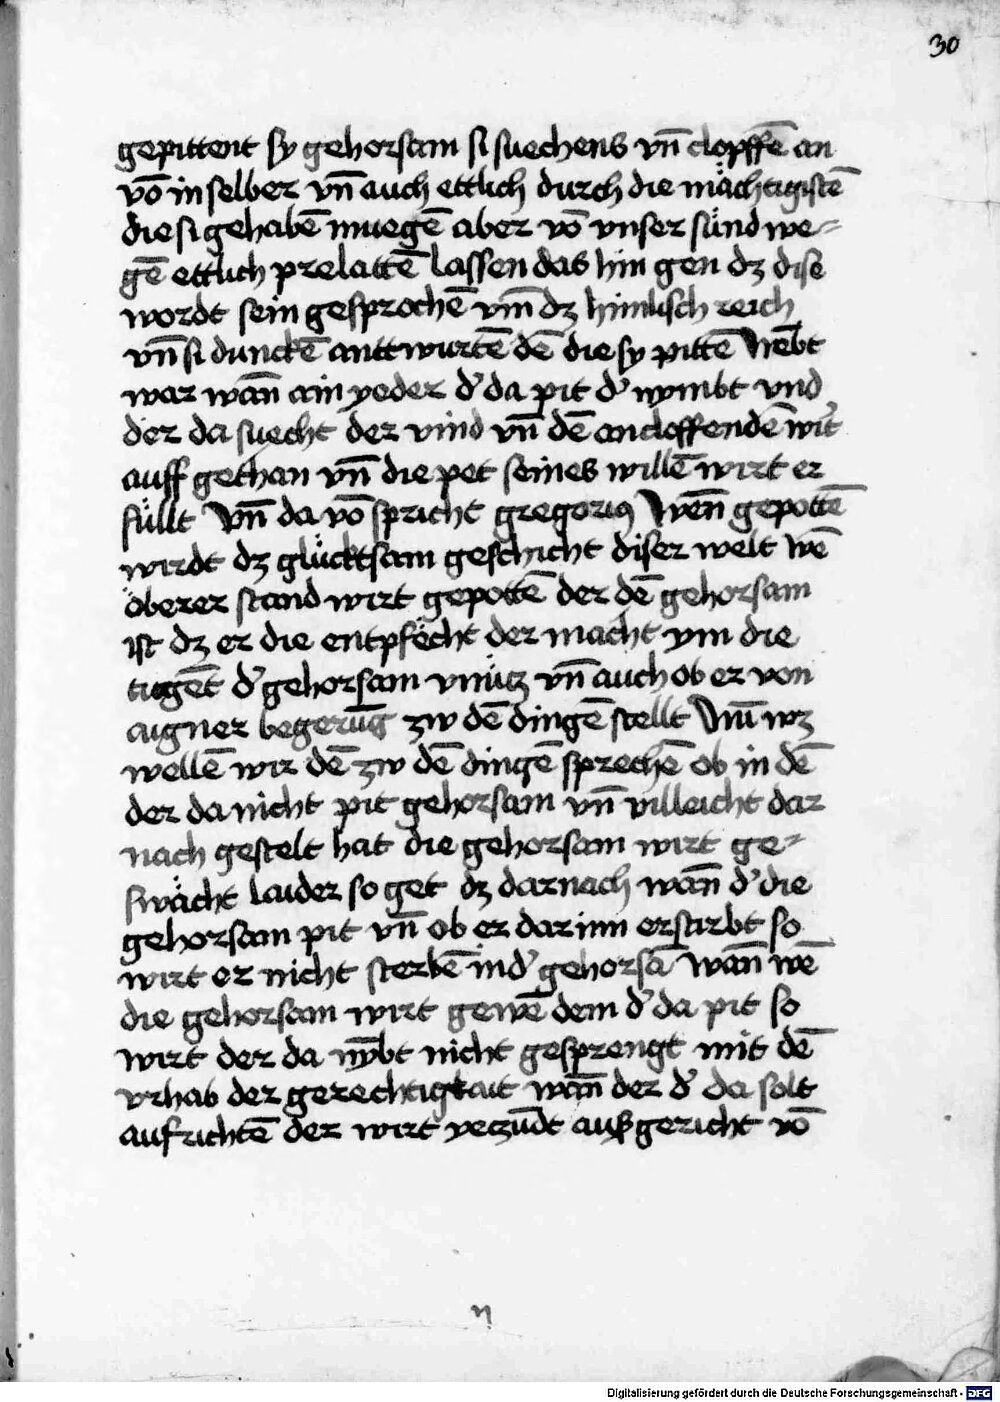 30
gepittent sy gehorsam si suechens vn̄ clopffē an
vō in selber vn̄ auch ettlich durch die mächtigistē
die si gehabē muegē aber vō vnser sünd we-
gē ettlich prelattē lassen das hin gen dz dise
wordt sein gesprochē vm̄ dz himlisch reich
vn̄ si dunckē antt wurtē dē die sy pittē Nēbt
war wān ain yeder d' da pit d' nymbt vnd
der da suecht der vind vn̄ dē ancloffendē wir̄t
auff gethan vn̄ die pet seines willē wirt er
füllt Vn̄ da vō spricht gregorius Wēn gepottē
wirdt dz glücktsam geschicht diser welt wē
öberer stand wirt gepottē der dē gehorsam
ist dz er die entpfēcht der macht ym die
tugēt d' gehorsam vnütz vn̄ auch ob er von
aigner begerūg zw dē dingē stellt Nū wz
wellē wir dē zw dē dingē sprechē ob in dē
der da nicht pit gehorsam vn̄ villeicht dar
nach gestelt hat die gehorsam wirt ge-
swächt laider so get dz darnach wān d' die
gehorsam pit vn̄ ob er dar inn erstirbt so
wirt er nicht sterbē in d' gehorsā wān wē
die gehorsam wirt gewē dem d' da pit so
wirt der da nȳbt nicht gesprengt mit dē
vrhab der gerechtigkait wān der d' da solt
aufrichtē der wirt yeczūdt außgericht vō
Digitalisierung gefördert durch die Deutsche Forschungsgemeinschaft - DFG